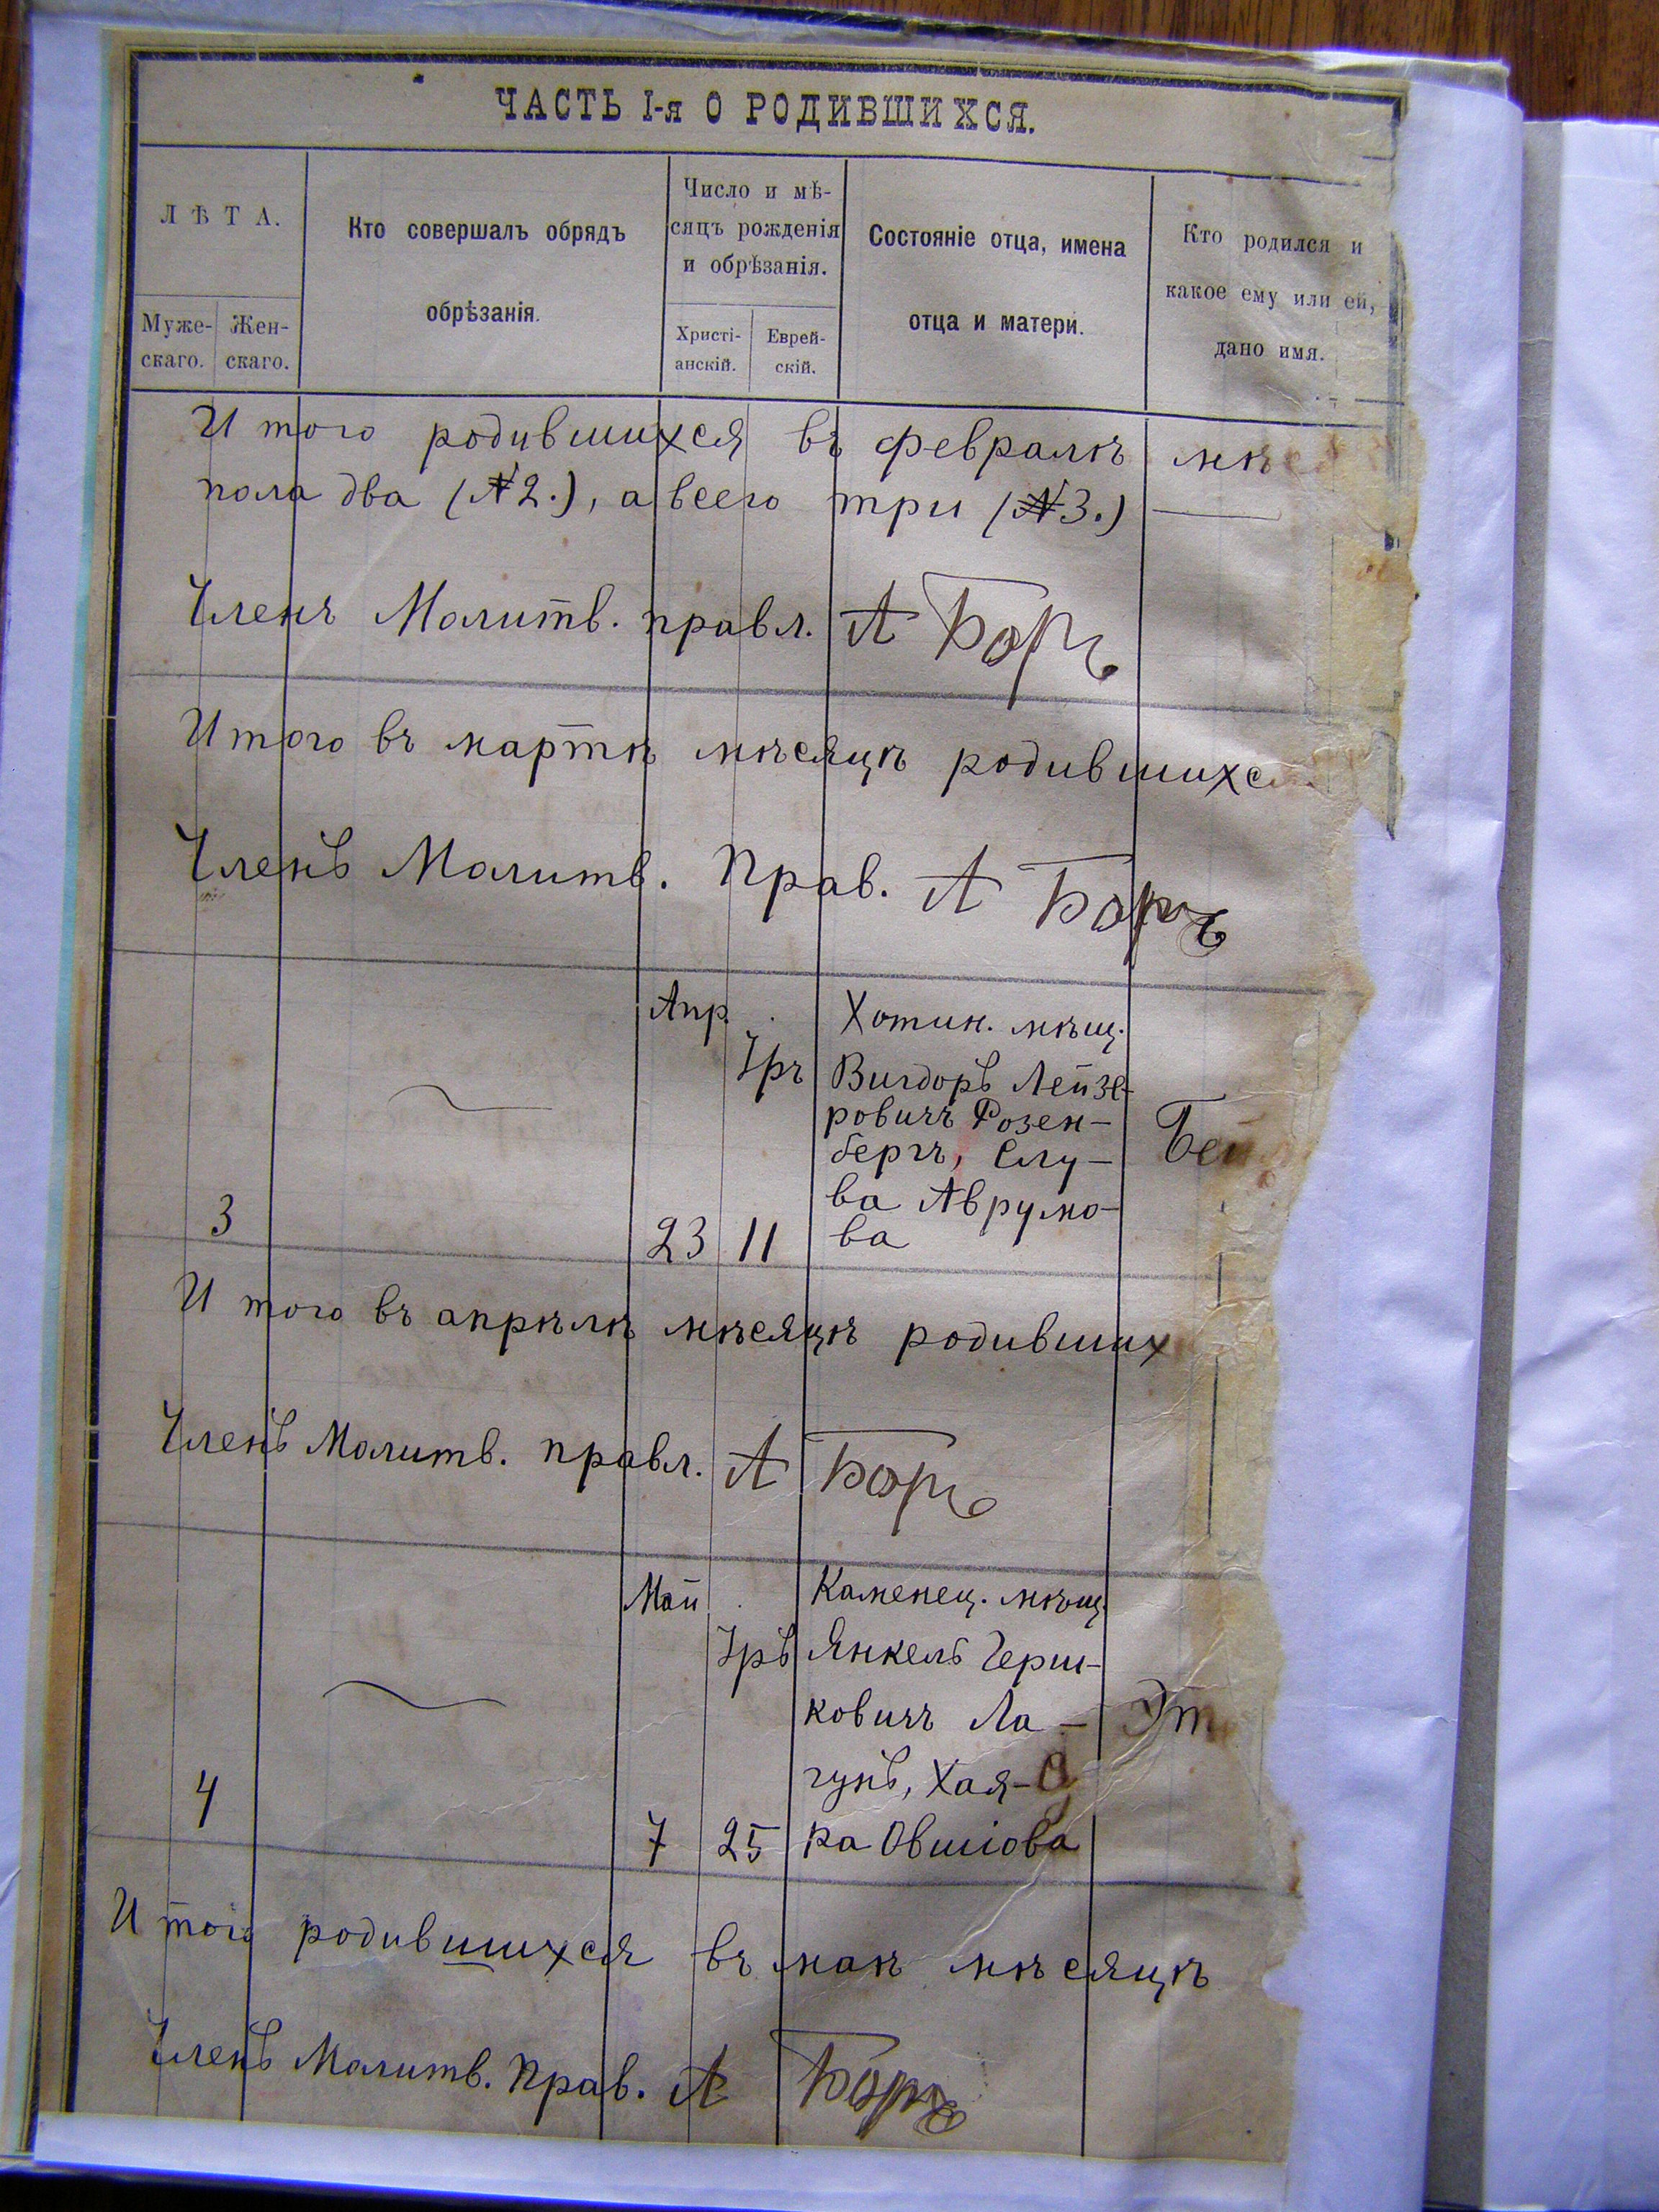 ЧАСТЬ I-я О РОДИВШИХСЯ.
ЛѢТА.
Муже-
скаго.
Жен-
скаго.
Кто совершалъ обрядъ
обрѣзанія.
Число и мѣ-
сяцъ рожденія
и обрѣзанія.
Христі-
анскій.
Еврей-
скій.
Состояніе отца, имена
отца и матери.
Кто родился и
какое ему или ей,
дано имя.
Итого родившихся въ февралѣ мѣс
пола два (№2.), а всего три (№3.)
Членъ Молитв. правл. А Боръ
Итого въ мартѣ мѣсяцѣ родившихс
Членъ Молитв. Прав. А Боръ
Апр. Хотин. мѣщ.
Іръ Вигдоръ Лейзе-
ровичъ Розен-
бергъ, Слу- Бей
ва Аврумо-
3 23 11 ва
Итого въ апрѣлѣ мѣсяцѣ родивших
Членъ Молитв. правл. А Боръ
Май Каменец. мѣщ.
Іръ Янкель Герш-
ковичъ Ла- Эт
гунъ, Хая-
4 7 25 ра Овшіова
Итого родившихся въ маѣ мѣсяцѣ
Членъ Молитв. Прав. А Боръ